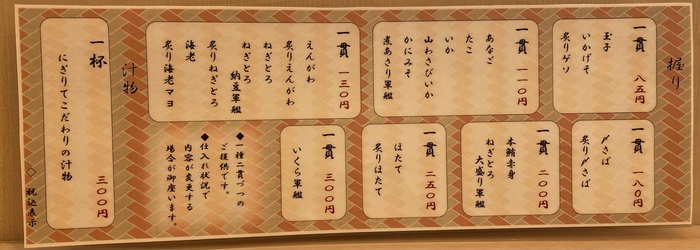 握り
一貫 八五円
玉子
いかげそ
炙りゲソ
一貫 一一〇円
あなご
たこ
いか
山わさびいか
かにみそ
煮あさり軍艦
一貫 一三〇円
えんがわ
炙りえんがわ
ねぎとろ
ねぎとろ
納豆軍艦
炙りねぎとろ
海老
炙り海老マヨ
一貫 一八〇円
〆さば
炙り〆さば
一貫 二〇〇円
本鮪赤身
ねぎとろ
大盛り軍艦
一貫 二五〇円
ほたて
炙りほたて
一貫 三〇〇円
いくら軍艦
◆一種二貫づつの
ご提供です。
◆仕入れ状況で
内容が変更する
場合が御座います。
汁物
一杯 三〇〇円
にぎりてこだわりの汁物
◇税込表示